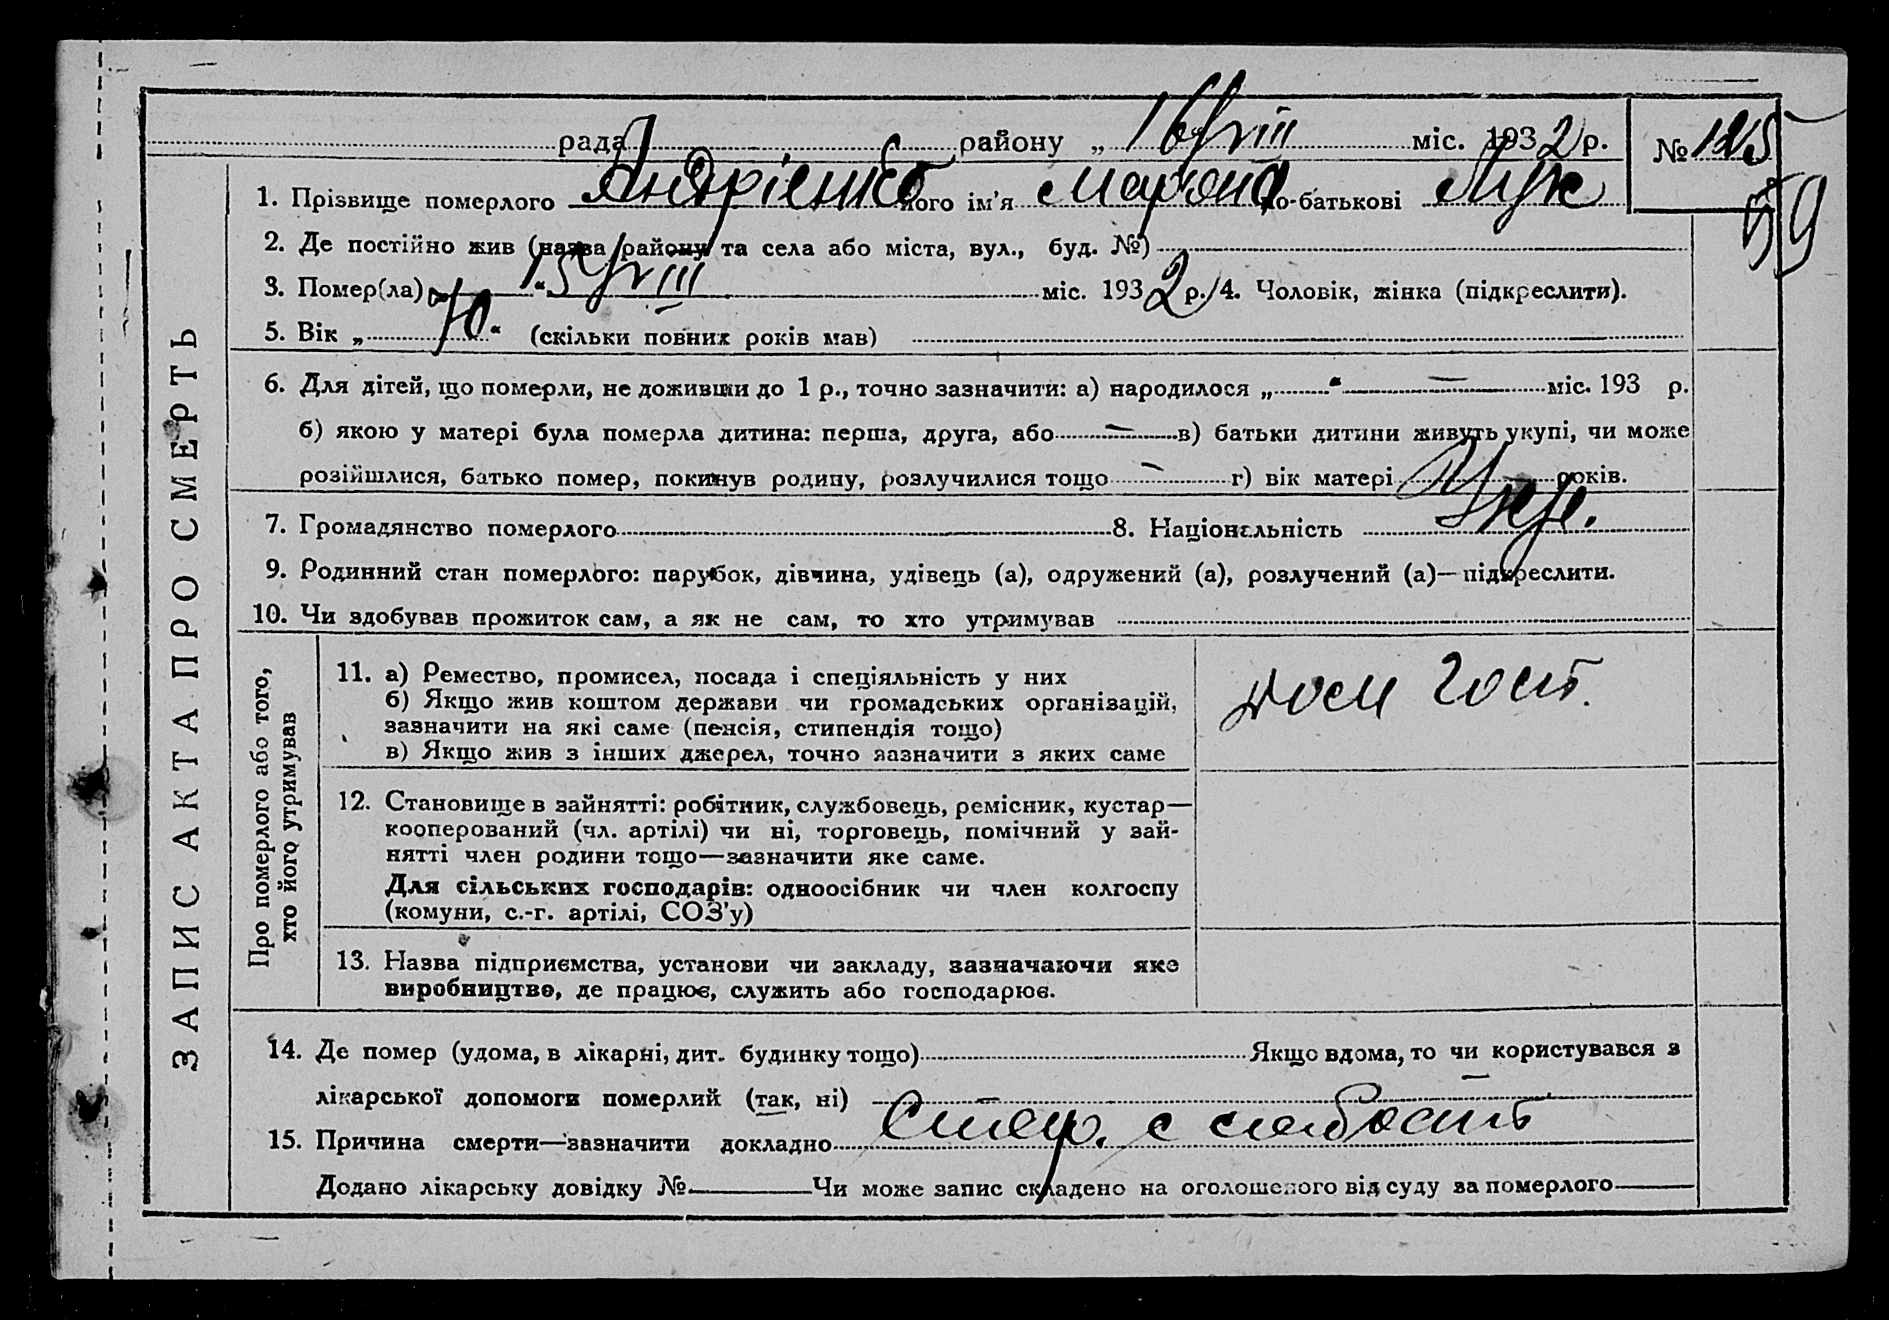 рада района „ 16/VIII міс. 1932 р. № 125
59
1. Прізвище померлого Андрієнко його ім'я Мар'яна по-батькові Лук
2. Де постійно жив (назва району та села або міста, вул., буд. №)
3. Помер(ла) „ “ 15/VIII міс. 1932 р./4. Чоловік, жінка (підкреслити).
5. Вік „ 70 “ (скільки повних років мав)
6. Для дітей, що померли, не доживши до 1 р., точно зазначити: а) народилося „ “ — міс. 193 р.
б) якою у матері була померла дитина: перша, друга, або — в) батьки дитини живуть укупі, чи може
розійшлися, батько помер, покинув родину, розлучилися тощо — г) вік матері років.
7. Громадянство померлого 8. Національність Укр.
9. Родинний стан померлого: парубок, дівчина, удівець (а), одружений (а), розлучений (а)—підкреслити.
10. Чи здобував прожиток сам, а як не сам, то хто утримував
ЗАПИС АКТА ПРО СМЕРТЬ
Про померлого або того, хто його утримував
11. а) Ремество, промисел, посада і спеціяльність у них
б) Якщо жив коштом держави чи громадських організацій,
зазначити на які саме (пенсія, стипендія тощо)
в) Якщо жив з інших джерел, точно зазначити з яких саме
дом госп.
12. Становище в зайнятті: робітник, службовець, ремісник, кустар—
кооперований (чл. артілі) чи ні, торговець, помічний у зай-
нятті член родини тощо—зазначити яке саме.
Для сільських господарів: одноосібник чи член колгоспу
(комуни, с.-г. артілі, СОЗ'у)
13. Назва підприємства, установи чи закладу, зазначаючи яке
виробництво, де працює, служить або господарює.
14. Де помер (удома, в лікарні, дит. будинку тощо) Якщо вдома, то чи користувався з
лікарської допомоги померлий (так, ні) —
15. Причина смерти—зазначити докладно Стар. с слабость
Додано лікарську довідку № Чи може запис складено на оголошеного від суду за померлого